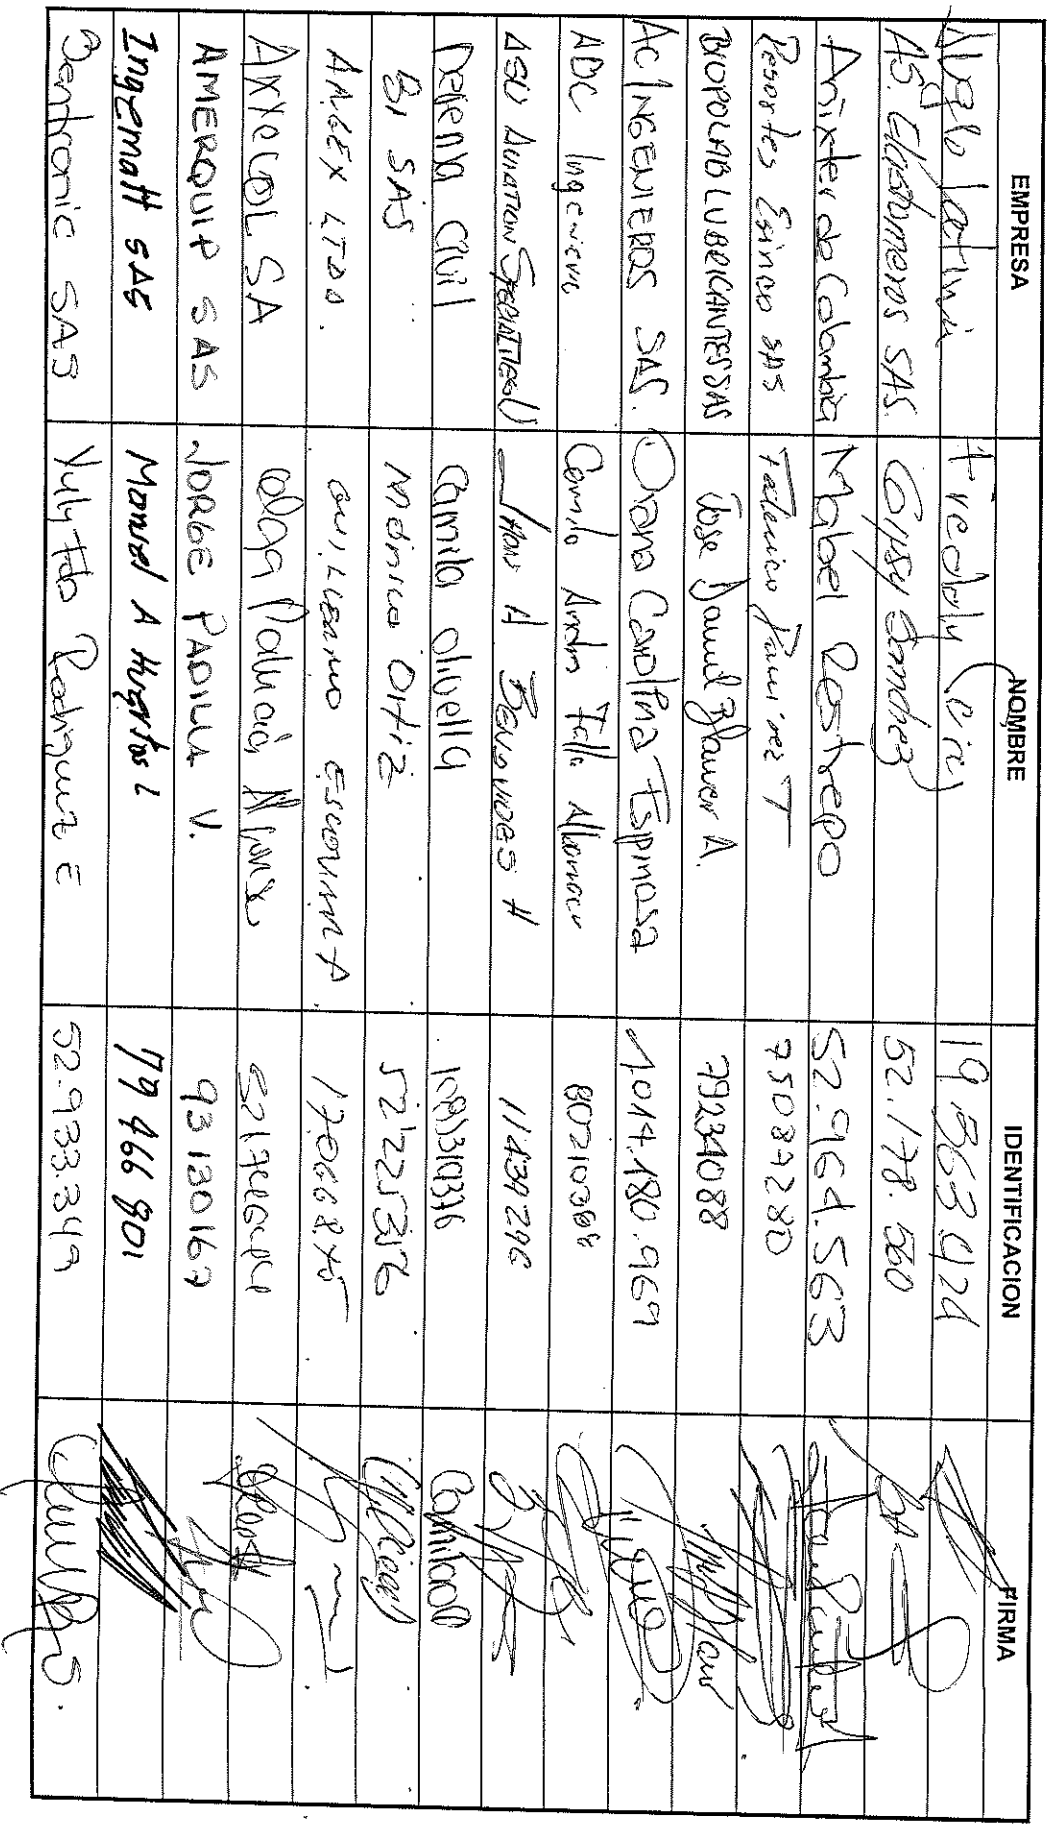 EMPRESA NOMBRE IDENTIFICACION FIRMA
Anglo Latina Freddy 19.563.424
AS. Elastomeros SAS. Gypsy Sanchez 52.178.560
Anixter de Colombia Mabel Restrepo 52.964.563
Resortes Esinco SAS Federico Ramirez T 75087280
BIOPOLAB LUBRICANTES SAS Jose Daniel A. 79234088
AC INGENIEROS SAS. Diana Carolina Espinosa 1.014.180.969
ADC Ingenieria Camilo Andres Tello 80210398
ASU AVIATION SPECIALITIES U JHON H BENAVIDES H 11439296
Defensa Civil Camila Olivella
BI SAS Monica Ortiz 52225376
AMGEX LTDA. GUILLERMO ESCOBAR A. 17066845
AXXECOL SA Olga Patricia Alfonso
AMERQUIP SAS JORGE PADILLA V. 93130167
Ingematt SAS Manuel A Hugetos L 79466801
Bentronic SAS Yuly Rodriguez E 52.933.349